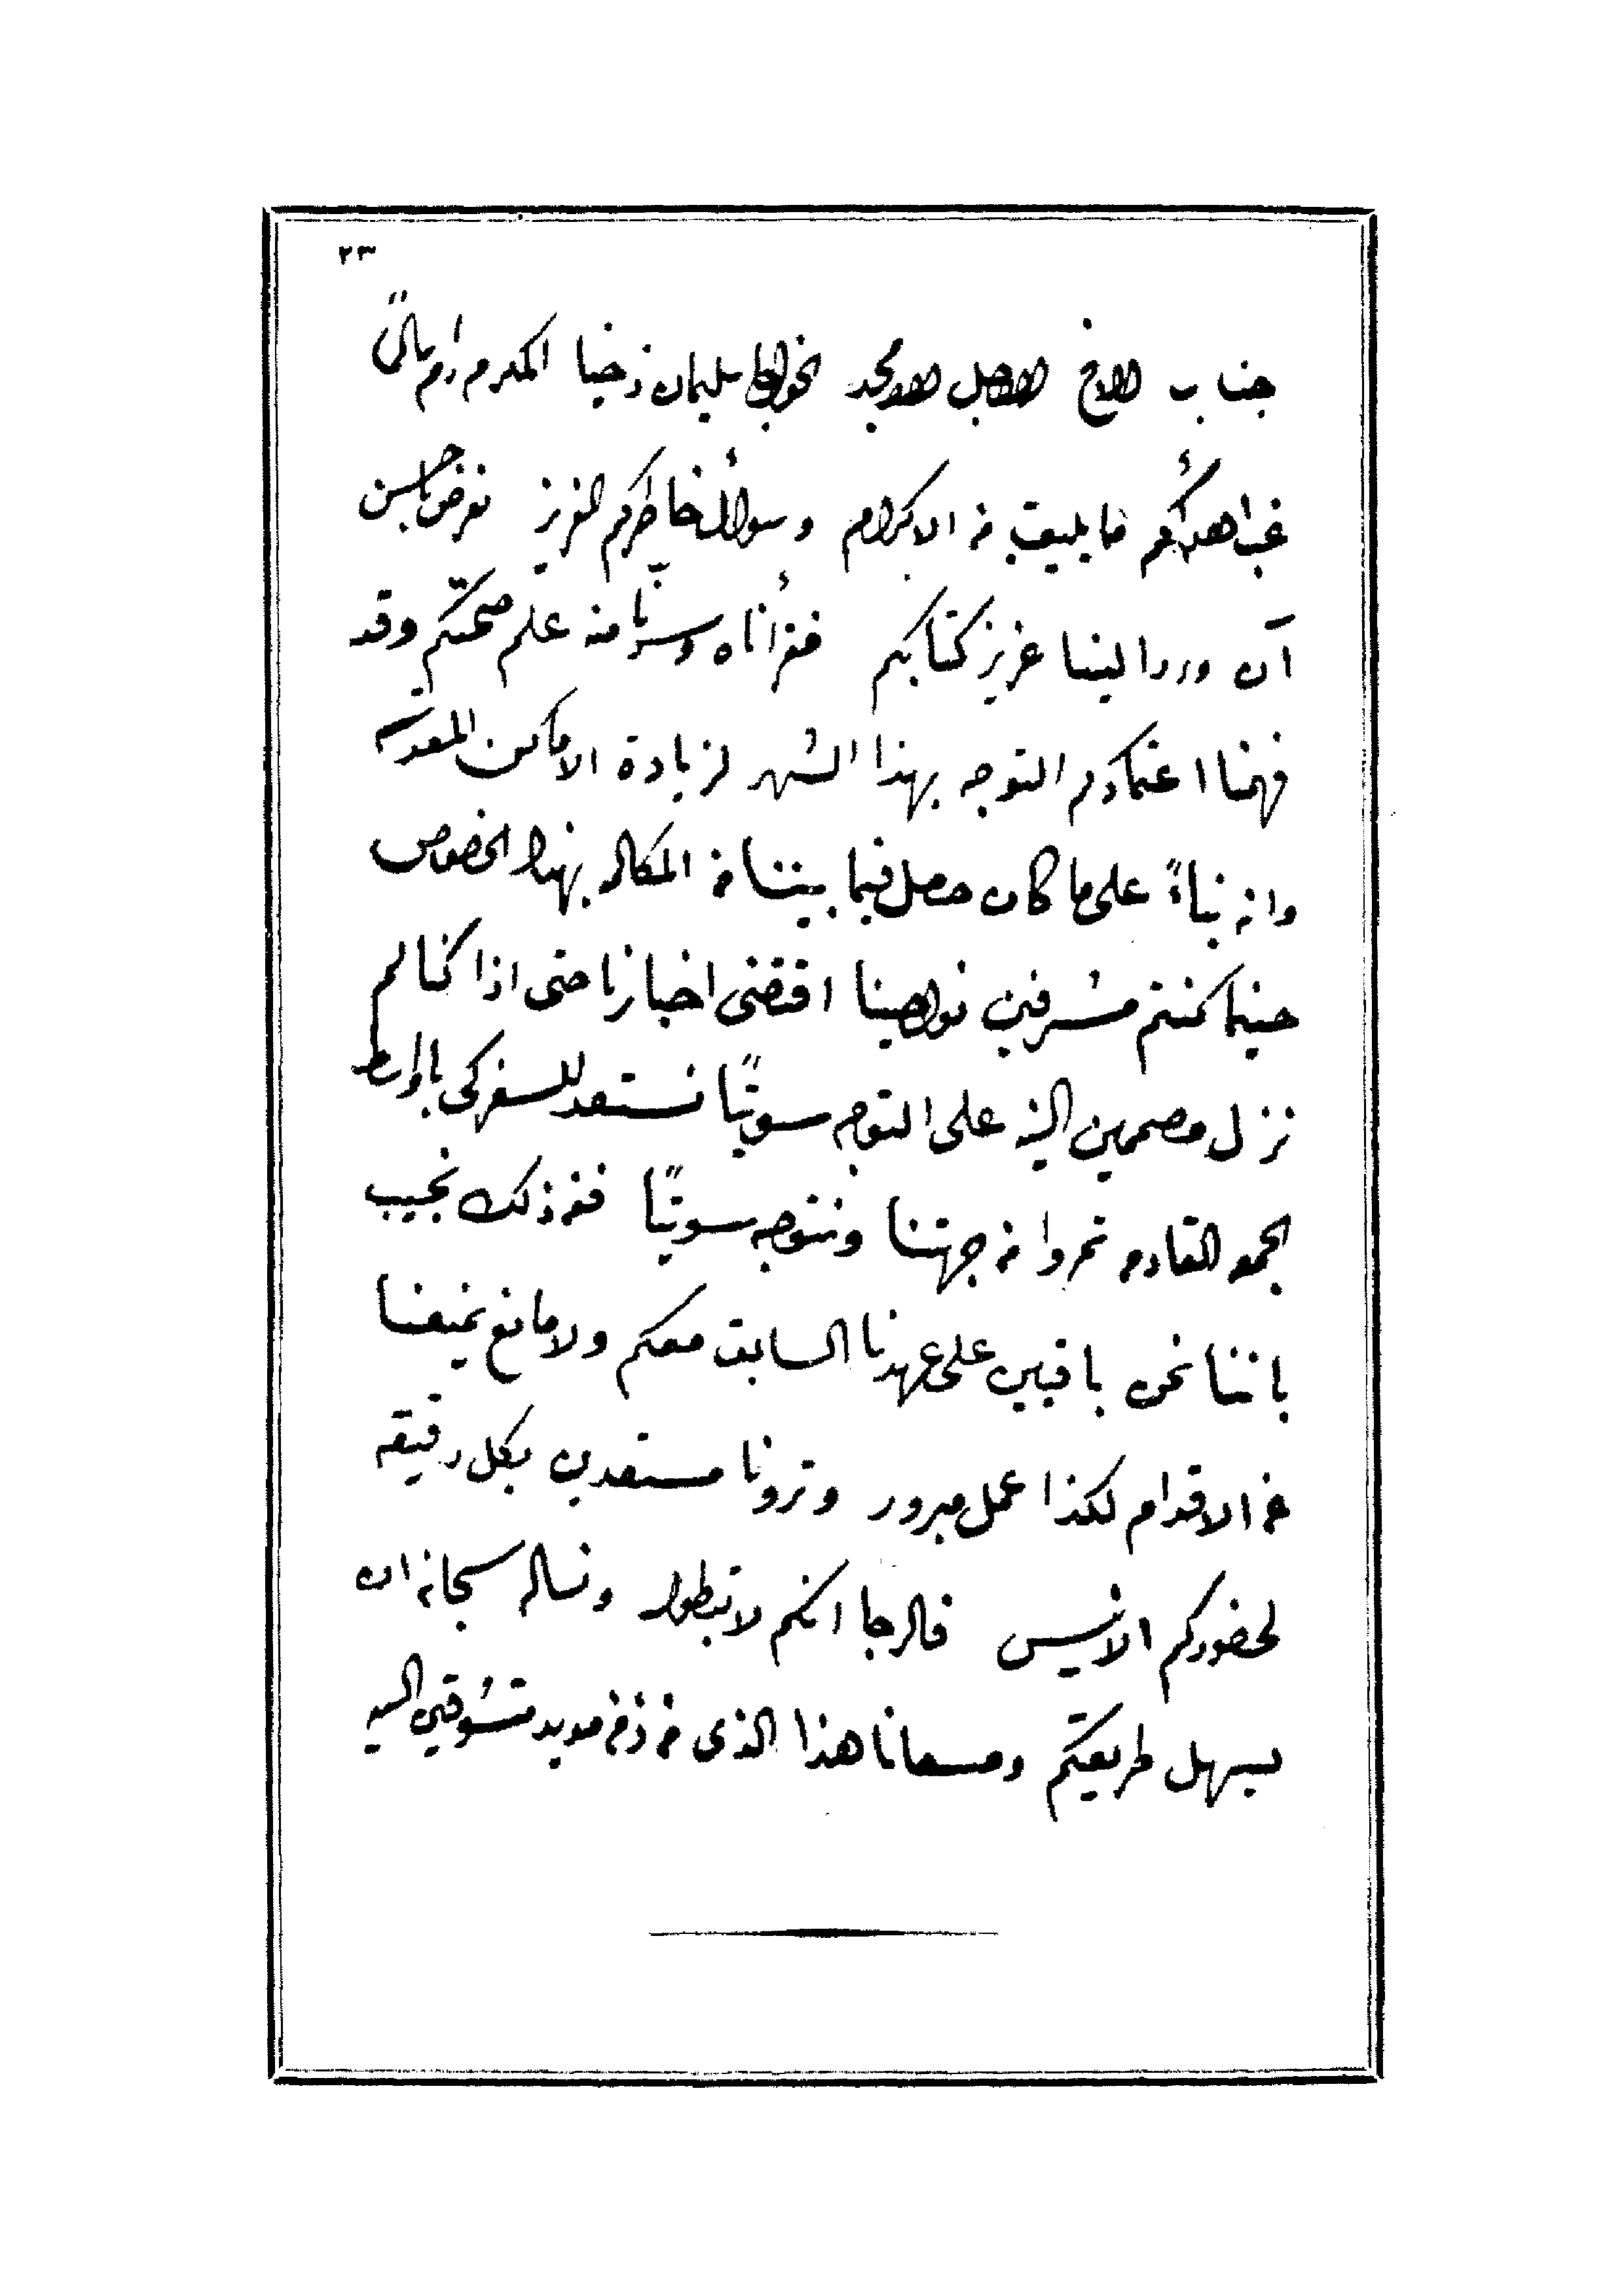 ٢٣
جناب الاخ الاجل الامجد الخواجا سليمان زخيا المكرم دام بقاه
غب اهدائكم ما يليق من الاكرام وسوال خاطركم العزيز نعرض باحسن
آن ورد الينا عزيز كتابكم فقرأناه وسرنا منه علم صحتكم وقد
فهمنا اعتمادكم التوجه بهذا الشهر لزيارة الاماكن المقدسه
وانه بناءً على ما كان حصل فيما بيننا من المكالمه بهذا الخصوص
حينما كنتم مشرفين نواحينا اقتضى اخبارنا حتى اذا كنا لم
نزل مصممين النيه على التوجه سويتًا نستعد للسفر كي باواسط
الجمعه القادمه تمروا من جهتنا ونتوجه سويتًا فعن ذلك نجيب
باننا نحن باقيين على عهدنا السابق معكم ولا مانع يمنعنا
عن الاقدام لكذا عمل مبرور وترونا مستعدين بكل دقيقه
لحضوركم الانيس فالرجا انكم لا تبطوا ونساله سبحانه ان
يسهل طريقكم ومسعانا هذا الذي من زمن مديد متشوقين اليه